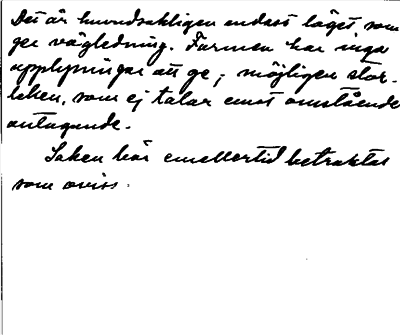 Det är huvudsakligen endast läget, som
ger vägledning. Formen har inga
upplysningar att ge; möjligen stor-
leken, som ej talar emot omstående
antagande.
Saken bör emellertid betraktas
som oviss.